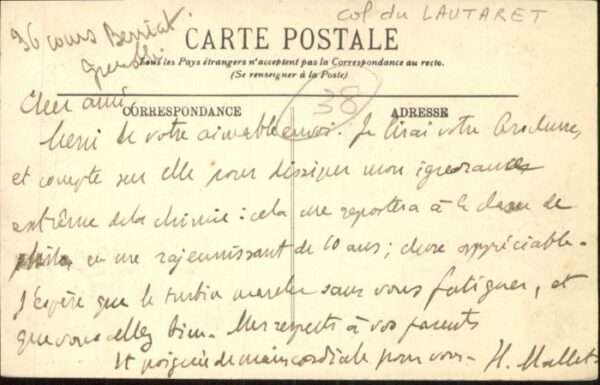 36 cours Berriat.
Grenoble
col du LAUTARET
CARTE POSTALE
Tous les Pays étrangers n'acceptent pas la Correspondance au recto.
(Se renseigner à la Poste)
38
CORRESPONDANCE
ADRESSE
Cher ami
Merci de votre aimable envoi. Je lirai votre brochure,
et compte sur elle pour dissiper mon ignorance
extrême de la chimie : cela me reportera à la classe de
philo, en me rajeunissant de 60 ans ; chose appréciable.
J'espère que le turbin marche sans vous fatiguer, et
que vous allez bien. Mes respects à vos parents
Et poignée de main cordiale pour vous. H. Mallet